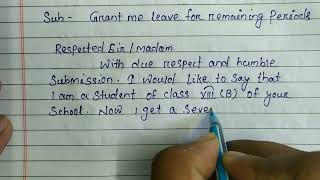 Sub- Grant me leave for remaining Periods
Respected Sir/madam
With due respect and humble
Submission. I would like to Say that
I am a Student of class VIII (B) of your
School. Now I get a Seve